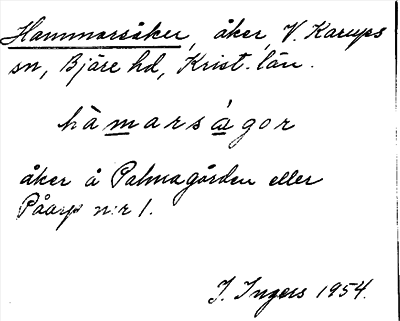 Hammarsåker, åker, V. Karups
sn, Bjäre hd, Krist. län.
hàmarságor
åker å Palmagården eller
Påarp n:r 1.
I. Ingers 1954.